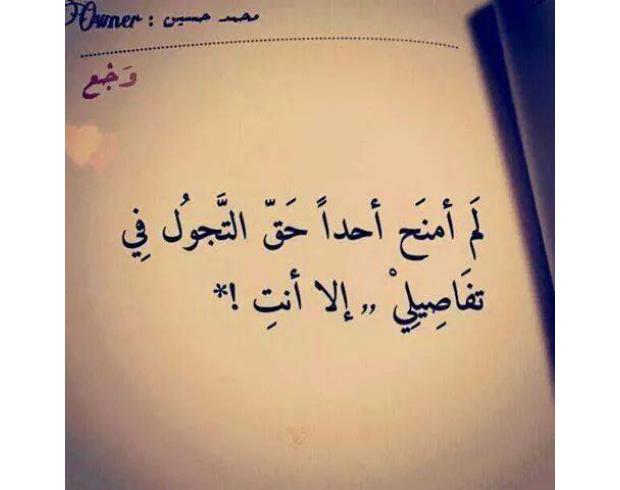 Owner : محمد حسين
وَجْع
لَم أمنَح أحداً حَقّ التَّجولُ فِي
تفَاصِيلِيْ ,, إلا أنتِ !*